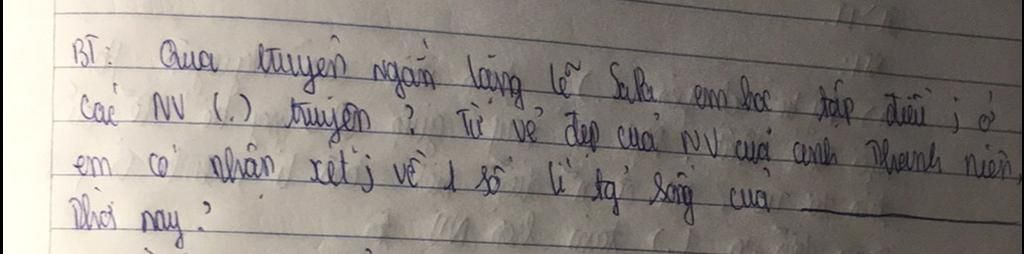 BT: Qua truyện ngắn lặng lẽ SaPa em học tập điều j ở
các NV (.) truyện? Từ vẻ đẹp của NV của anh thanh niên,
em có nhận xét j về 1 số lí tg' sống của
thời nay?